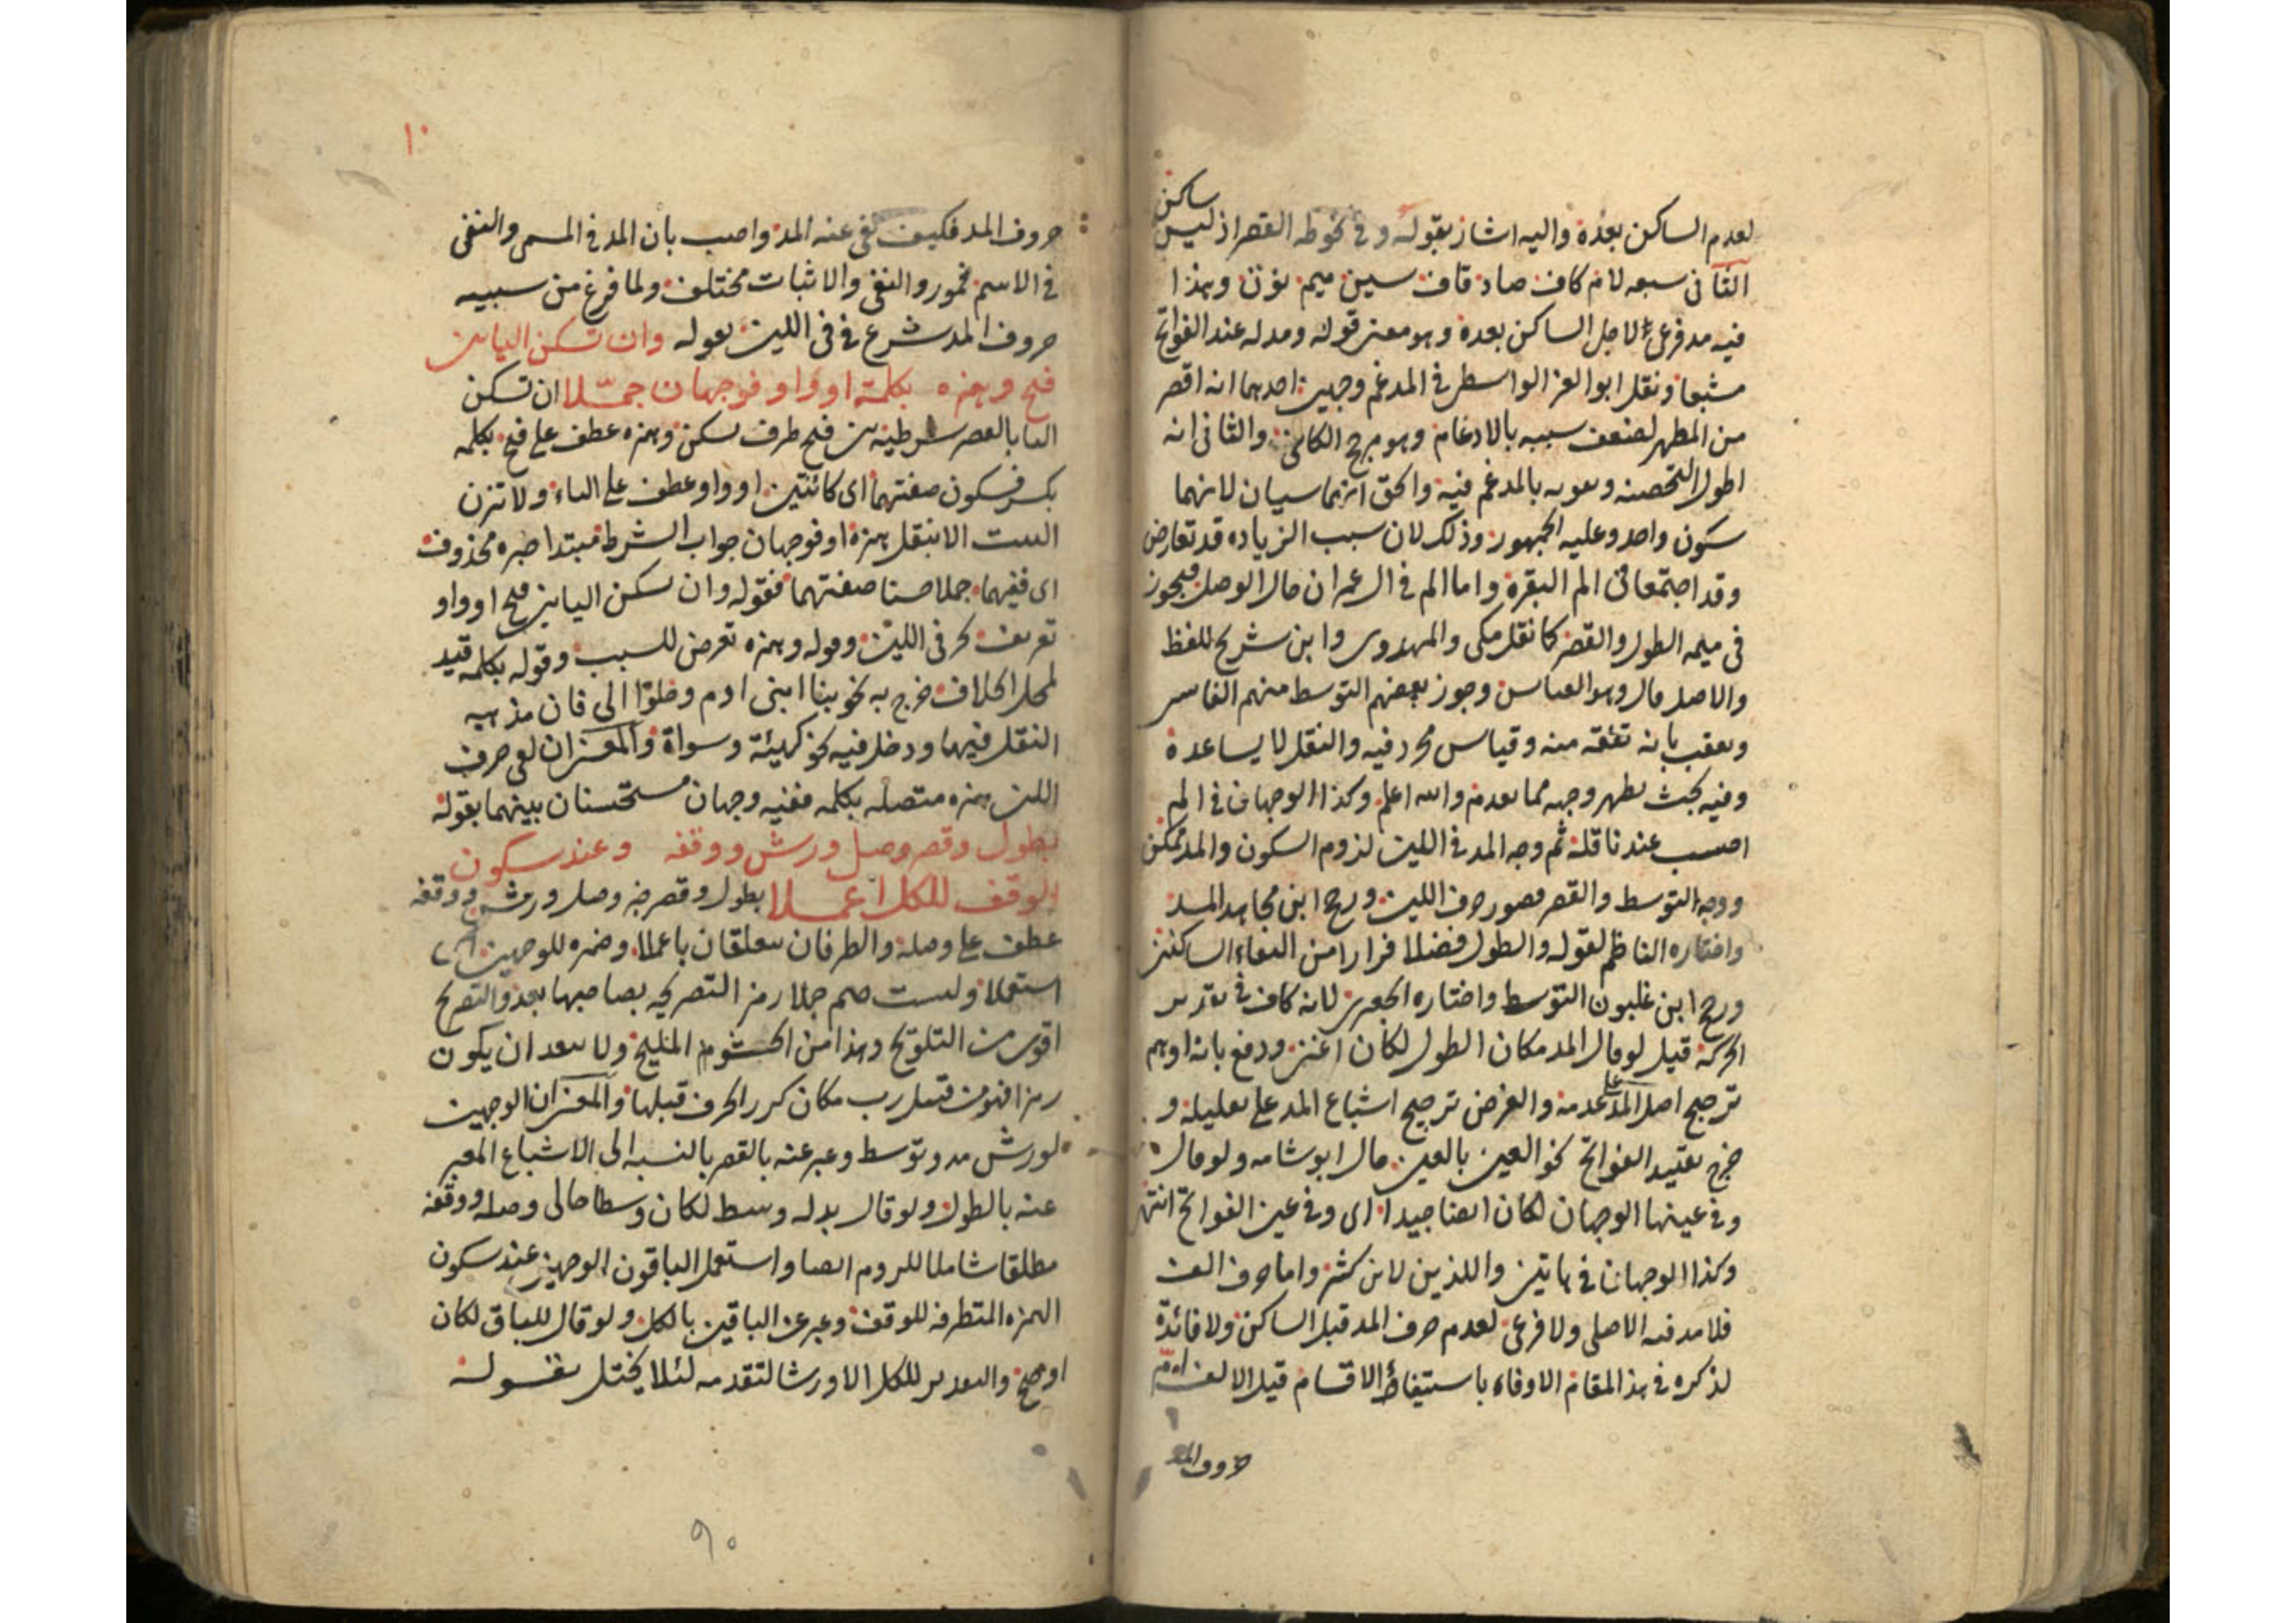 ساكن
لعدم الساكن بعده واليه اشار بقوله وفي نحو طه القصر اذ ليس
الثانى سبعه لام كاف صاد قاف سين ميم نون وهذا
فيه مد فرعى لاجل الساكن بعده وهو معنى قوله ومد له عند الفواتح
مشبعا ونقل ابو العز الواسطى فى المدغم وجهين احدهما انه اقصر
من المظهر لضعف سببه بالادغام وهو مرجح والثانى انه
اطول بالمدغم فيه والحق انهما سيان لانهما
سكون واحد وعليه الجمهور وذلك لان سبب الزياده قد تعارض
وقد اجتمعا فى الم البقره واما الم فى ال عمران حال الوصل فيجوز
فى ميمه الطول والقصر كما نقل مكى والمهدوى وابن شريح للفظ
والاصل قال وجوز بعضهم التوسط منهم الفاسى
وتعقب بانه تفقه منه وقياس مجرد فيه والنقل لا يساعده
وفيه بحث يظهر وجهه مما تقدم والله اعلم وكذا الوجهان فى الم
احسب عند ناقله ثم وجه المد فى اللين لزوم السكون والمد ممكن
ووجه التوسط والقصر قصور حرف اللين ورجح ابن مجاهد المد
واختاره الناظم لقوله والطول فضلا فرارا من التقاء الساكنين
ورجح ابن غلبون التوسط واختاره الجعبرى لانه كاف فى تقدير
الحركه قيل لو قال المد مكان الطول لكان اغنى ودفع بانه اوهم
ترجيح اصل المد على عدمه والغرض ترجيح اشباع المد على تعليله و
خرج بقيد الفواتح نحو العين بالعين قال ابو شامه ولو قال
وفى عينها الوجهان لكان ايضا جيدا اى وفى عين الفواتح انتهى
وكذا الوجهان فى هاتين واللذين لابن كثير واما حرف الف
فلا مد فيه لا اصلى ولا فرعى لعدم حرف المد قبل الساكن ولا فائدة
لذكره فى هذا المقام الا وفاء باستيفاء الاقسام قيل الالف ام
حروف المد
١٠
حروف المد فكيف نفى عنه المد واجيب بان المد فى المسمى والنفى
فى الاسم والنفى والاثبات مختلف ولما فرغ من سببيه
حروف المد شرع فى حرفى اللين بقوله وان تسكن اليا بين
فتح وهمزه بكلمة او واو فوجهان جمّلا ان تسكن
اليا بالقصر شرطيه بين فتح ظرف تسكن وهمزه عطف على فتح بكلمه
بكسر فسكون صفتهما اى كائنتين او واو عطف على الياء ولا تزن
البيت الا بنقل همزة او فوجهان جواب الشرط مبتدا خبره محذوف
اى ففيهما جملا حسنا صفتهما فقوله وان تسكن اليا بين فتح او واو
تعريف لحرفى اللين وقوله وهمزه تعرض للسبب وقوله بكلمه قيد
لمحل الخلاف خرج به نحو بنا ابنى ادم وخلوا الى فان مذهبه
النقل فيهما ودخل فيه نحو كهيئة وسواة والمعنى ان لقى حرف
اللين همزه متصله بكلمه ففيه وجهان مستحسنان بينهما بقوله
بطول وقصر وصل ورش ووقفه وعند سكون
الوقف للكل اعملا بطول وقصر وصل ورش ووقفه
عطف على وصله والظرفان متعلقان باعملا وضميره للوجهين اى
استعملا وليست جيم جملا رمز التصريحه بصاحبها بعد والتصريح
اقوى من التلويح وهذا من ولا يبعد ان يكون
قبل رب مكان كرر الحرف قبلها والمعنى ان الوجهين
لورش مد وتوسط وعبر عنه بالقصر بالنسبه الى الاشباع المعبر
عنه بالطول ولو قال بدله وسط لكان وسطا حالى وصله ووقفه
مطلقا شاملا للروم ايضا واستعمل الباقون الوجهين عند سكون
الهمزه المتطرفه للوقف وعبر عن الباقين بالكل ولو قال للباق لكان
اوضح والتقدير للكل الا ورشا لتقدمه لئلا يختل بقوله
٩٠